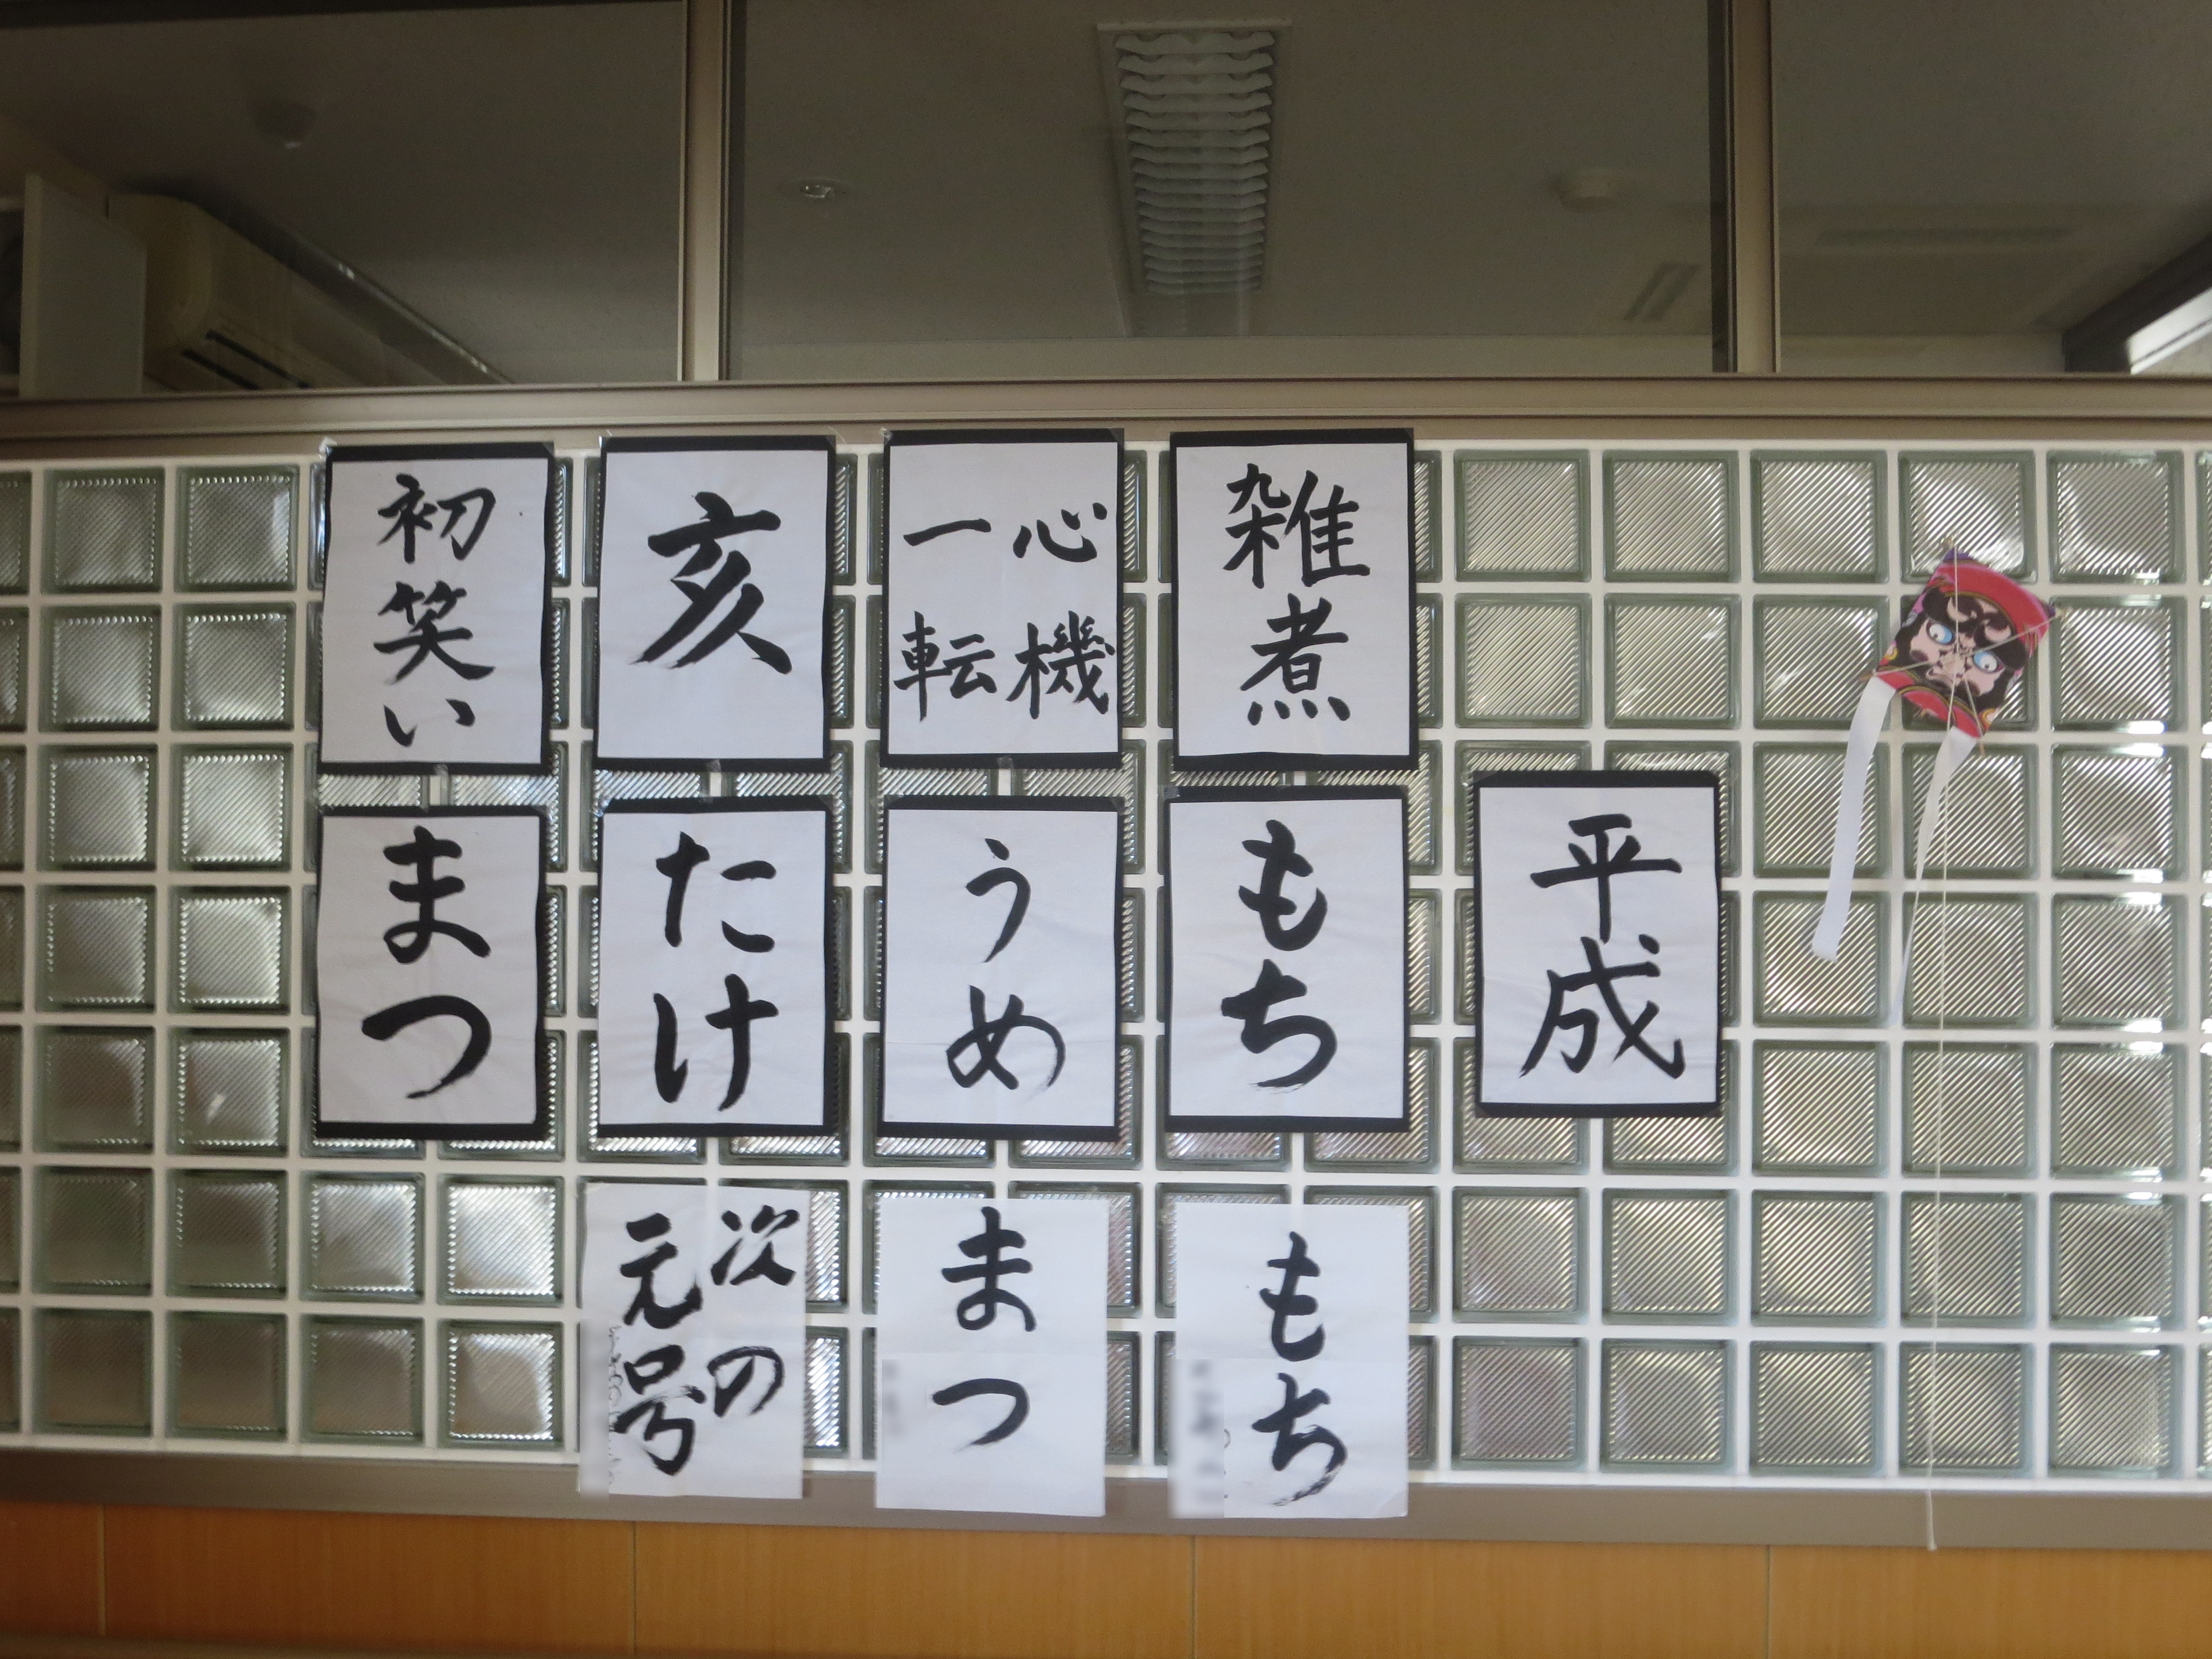 初笑い
亥
心機
一転
雑煮
まつ
たけ
うめ
もち
平成
次の
元号
まつ
もち